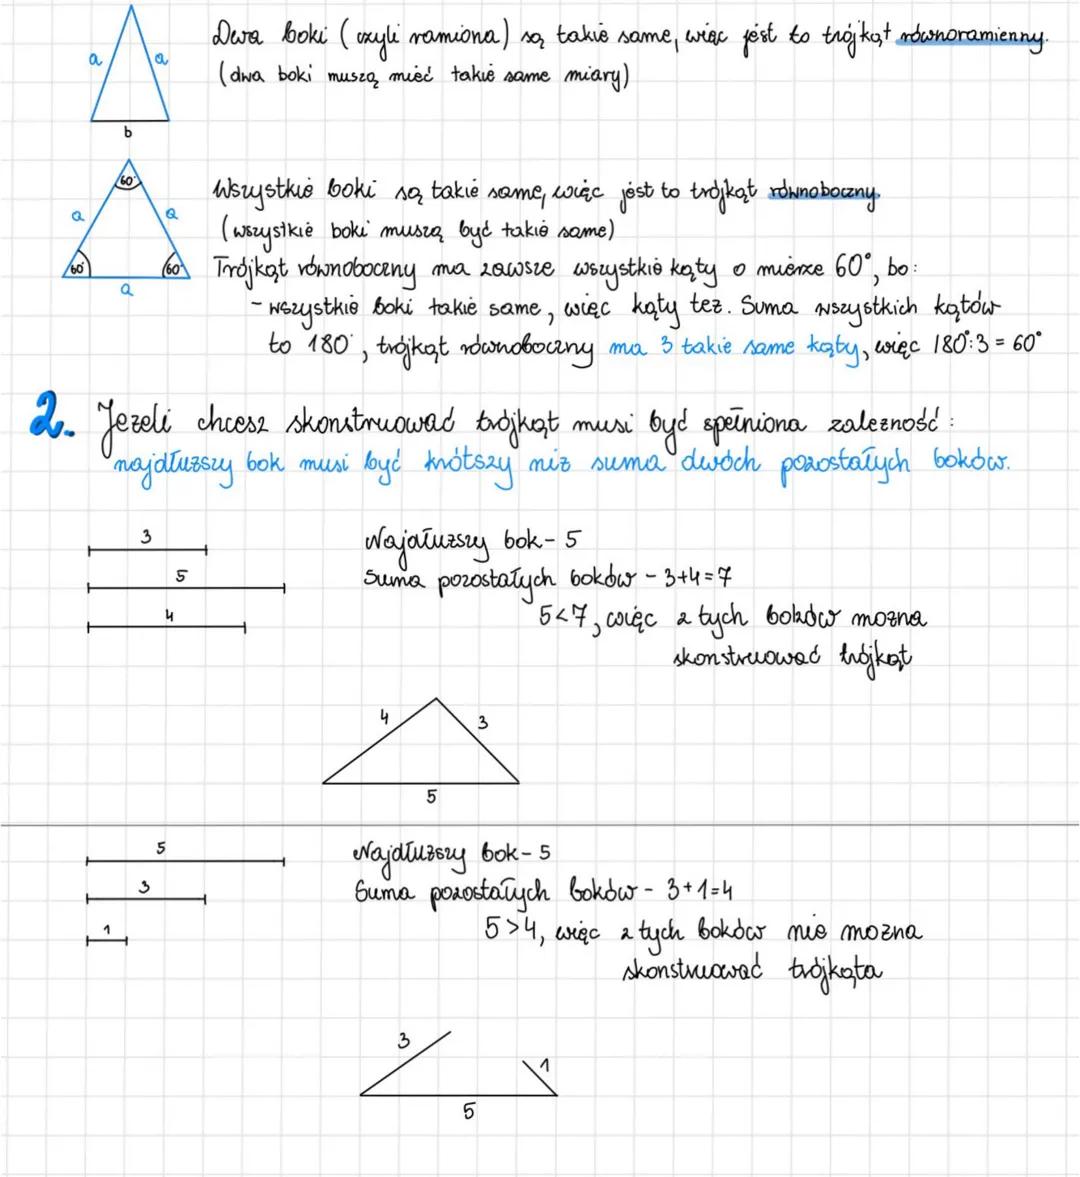 a
a
b
Dwa boki (czyli ramiona) są takie same, więc jest to trójkąt równoramienny.
(dwa boki muszą mieć takie same miary)
60°
a
a
60°
60°
a
Wszystkie boki są takie same, więc jest to trójkąt równoboczny.
(wszystkie boki muszą być takie same)
Trójkąt równoboczny ma zawsze wszystkie kąty o mierze 60°, bo:
- wszystkie boki takie same, więc kąty też. Suma wszystkich kątów
to 180°, trójkąt równoboczny ma 3 takie same kąty, więc 180°:3 = 60°
2. Jeżeli chcesz skonstruować trójkąt musi być spełniona zależność:
najdłuższy bok musi być krótszy niż suma dwóch pozostałych boków.
3
5
4
Najdłuższy bok - 5
Suma pozostałych boków - 3+4=7
5<7, więc z tych boków można
skonstruować trójkąt
4
3
5
5
3
1
Najdłuższy bok - 5
Suma pozostałych boków - 3+1=4
5>4, więc z tych boków nie można
skonstruować trójkąta
3
1
5